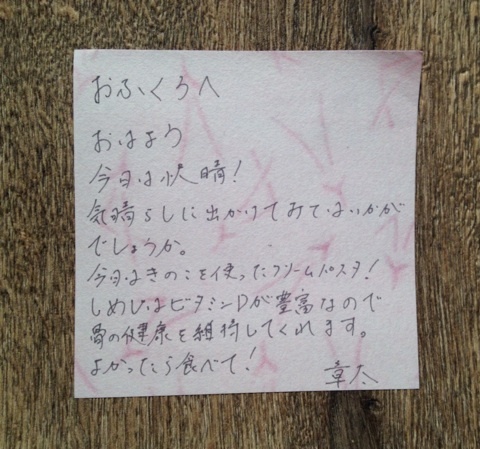 おふくろへ
おはよう
今日は快晴!
気晴らしに出かけてみてはいかが
でしょうか。
今日はきのこを使ったクリームパスタ!
しめじはビタミンDが豊富なので
骨の健康を維持してくれます。
よかったら食べて!
章太